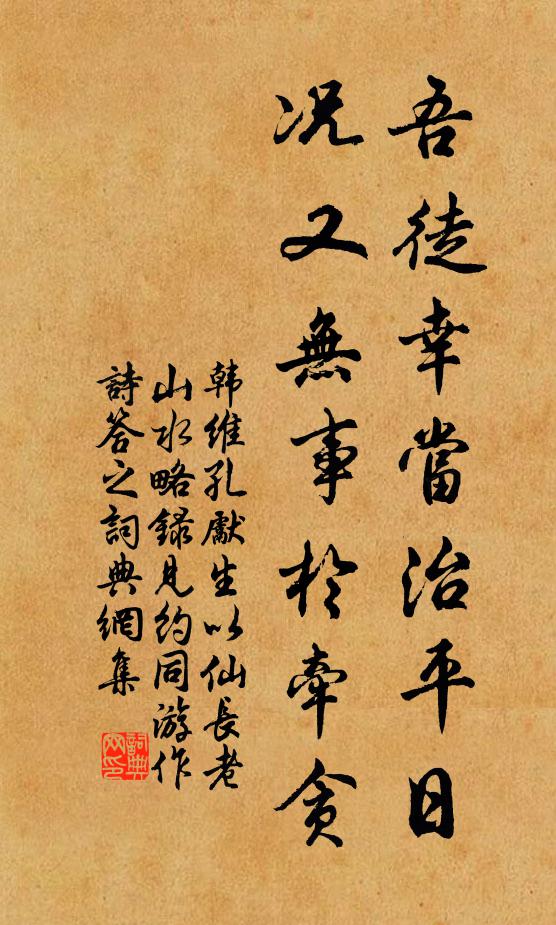 吾徒幸當治平日
况又無事於牽貪
韩維孔獻生以仙長老
山水略録見約同游作
詩答之詞典網集
詞典
网印